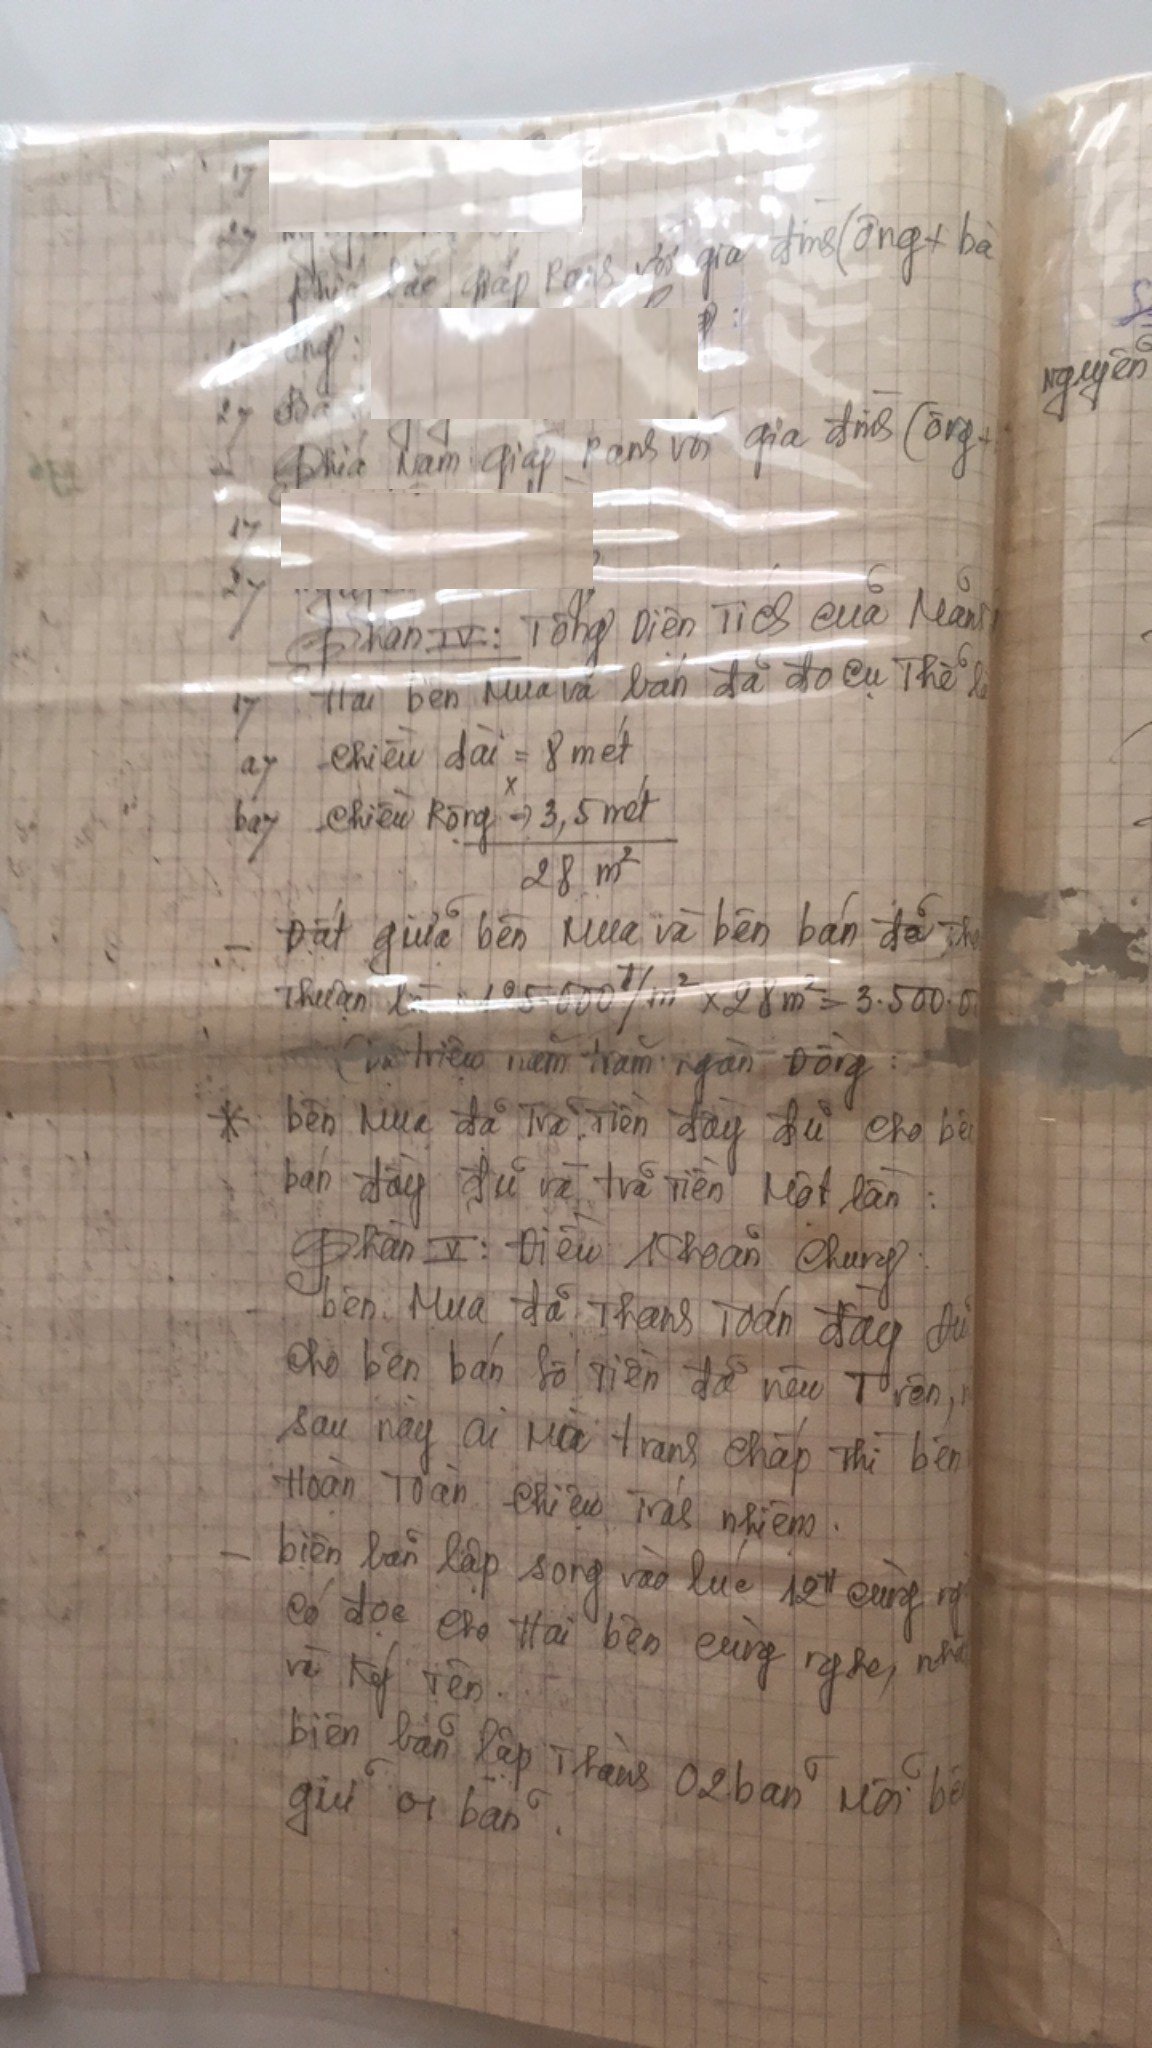 1/
2/
phía bắc giáp Ranh với gia đình (ông + bà
ông:
2/ Bà
- phía Nam giáp Ranh với gia đình (ông +
1/
2/
phần IV: Tổng Diện Tích của Mảnh
1/ Hai bên Mua và bán đã đo cụ Thể là
a/ chiều dài = 8 mét
x
b/ chiều Rộng → 3,5 mét
28 m²
- Đất giữa bên Mua và bên bán đã Thỏ
Thuận là 125.000đ/m² x 28m² = 3.500.0
triệu năm trăm ngàn Đồng:
* bên Mua đã Trả Tiền đầy đủ cho bên
bán đầy đủ và trả Tiền Một lần:
phần V: Điều Khoản Chung:
- bên Mua đã Thanh Toán đầy đủ
cho bên bán số tiền đã nêu Trên,
sau này ai Mà tranh chấp Thì bên
Hoàn Toàn chiệu Trách nhiệm.
- biên bản lập song vào lúc 12H cùng ng
có đọc cho Hai bên cùng nghe, nhá
và Ký Tên.
biên bản lập Thành 02 bản Mỗi bê
giữ 01 bản.
Nguyễn